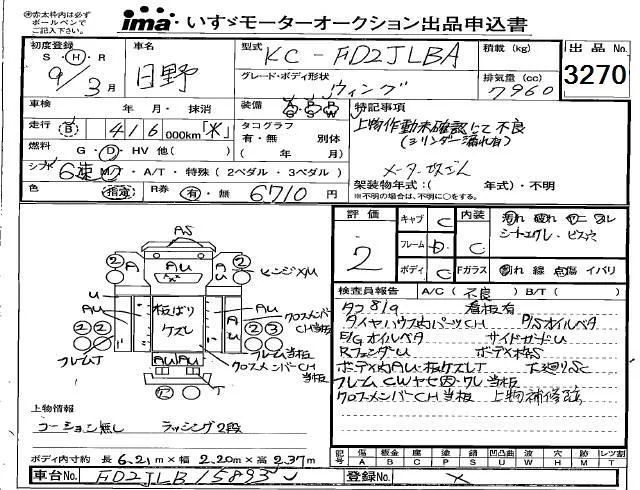 ※赤太枠内は必ず
ボールペンで
ご記入下さい。
ima・いすゞモーターオークション出品申込書
初度登録
S・H・R
9年3月
車名
日野
型式 KC-FD2JLBA
グレード・ボディ形状
ウィング
積載(kg)
排気量(cc)
7960
出品No.
3270
車検 年・月・抹消
装備
特記事項
上物作動未確認にて不良
(シリンダー漏れ有)
メーター改ざん
走行 416000km「水」
タコグラフ
有・無 別体
(年 月)
燃料 G・D・HV 他( )
シフト 6速 M/T・A/T・特殊(2ペダル・3ペダル)
架装物年式:( 年式)・不明
※不明の場合は、不明に○をする。
色 指定
R券 有・無 6710円
評価
2
キャブ C
フレーム D
ボディ C
内装 C
汚れ 破れ ヤニ ヌレ
シートエグレ・ビス穴
Fガラス 割れ 線 点傷 イバリ
検査員報告 A/C(不良) B/T( )
タコ819 看板有
タイヤハウス内パーツCH P/Sオイルベタ
E/Gオイルベタ サイドガードU
RフェンダーU ボディ枠S
ボディ内AU・板ケズレT 下廻りSC
フレームCWヤセ凹・ワレ当板
クロスメンバーCH当板 上物補修跡
AS
2
2
AU
ヒンジXU
U
AU
板ばり
ケズレ
AU
クロスメンバーCH
当板
2 2
2 3
フレームT
フレーム当板
AU AU
クロスメンバーCH
当板
T
上物情報
コーション無し ラッシング2段
ボディ内寸約 長6.21m×幅2.20m×高2.37m
記号
傷 A
板金 B
腐 C
塗 P
錆 S
凹凸曲 U
波 W
穴 H
跡 M
レツ割 T
車台No. FD2JLB15893
登録No.